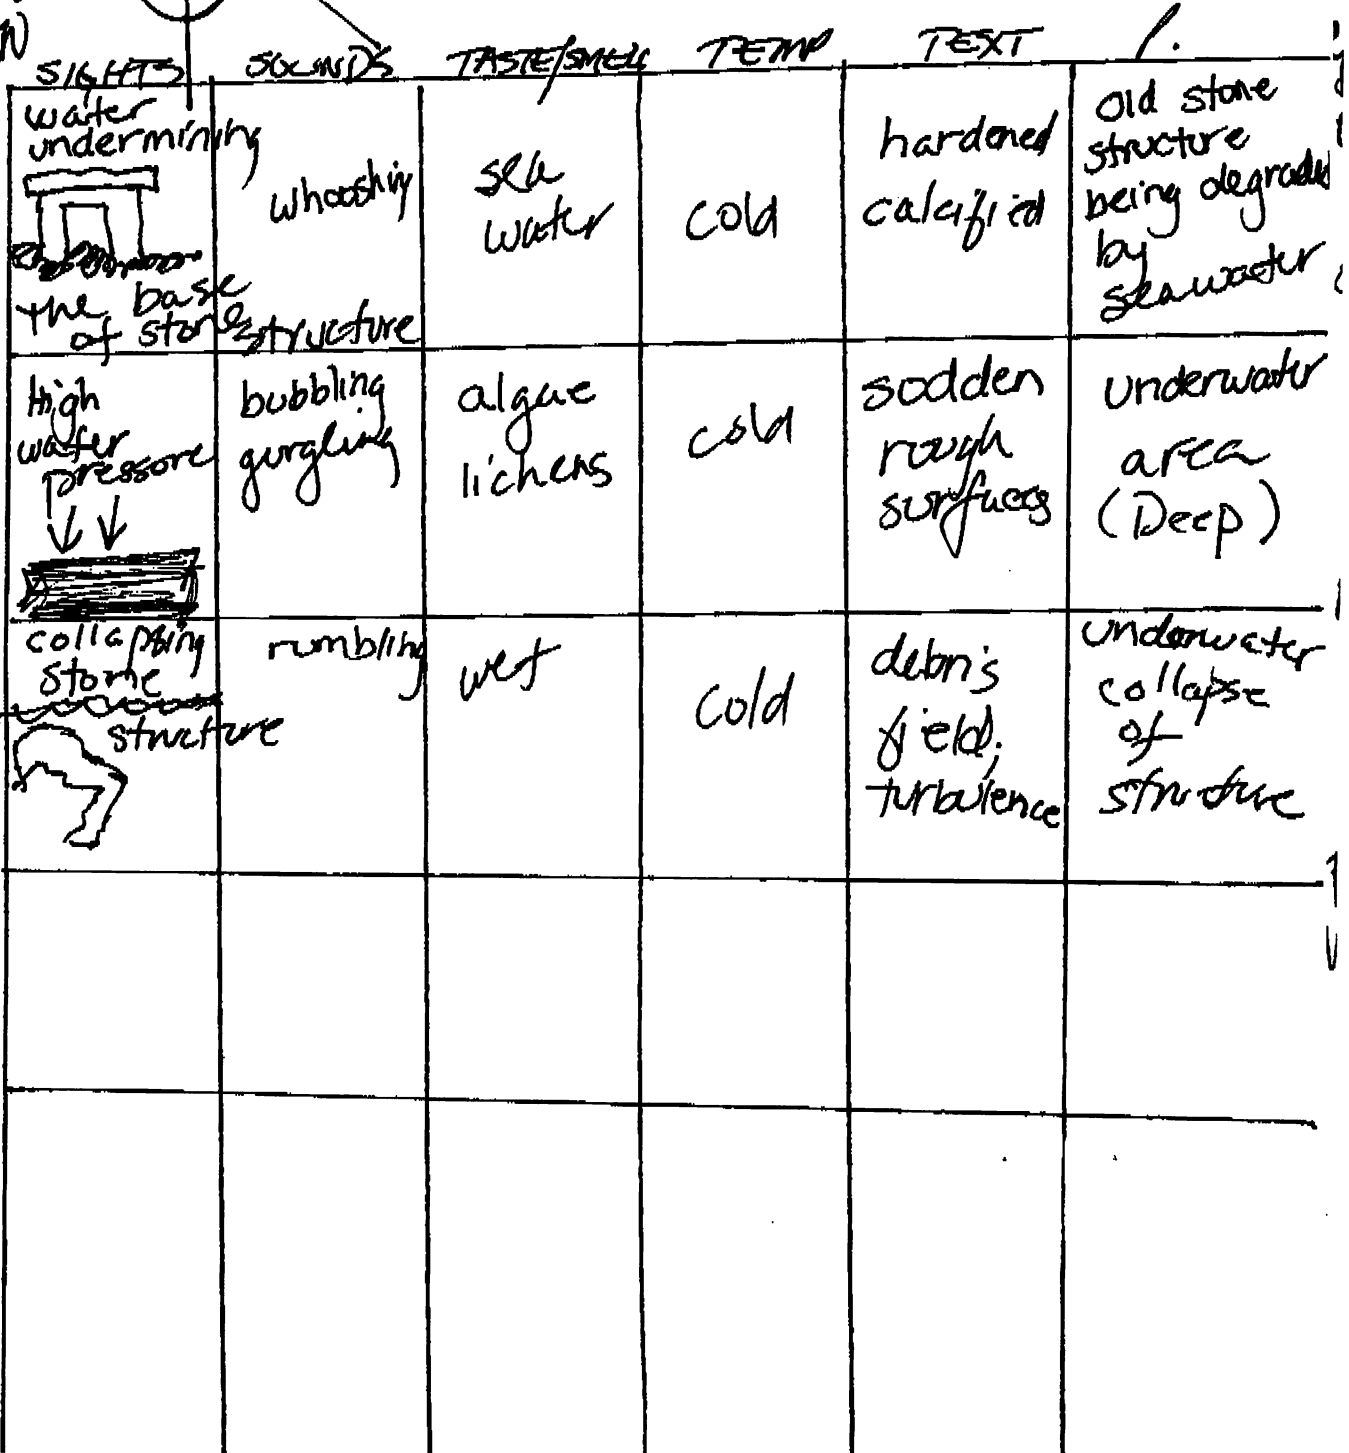 N
SIGHTS SOUNDS TASTE/SMELL TEMP TEXT /.
water
undermining
the base
of stone structure
whooshing
sea
water
cold
hardened
calcified
Old stone
structure
being degraded
by
seawater
High
water
pressure
bubbling
gurgling
algae
lichens
cold
sodden
rough
surfaces
underwater
area
(Deep)
collapsing
stone
structure
rumbling
wet
cold
debris
field,
turbulence
underwater
collapse
of
structure